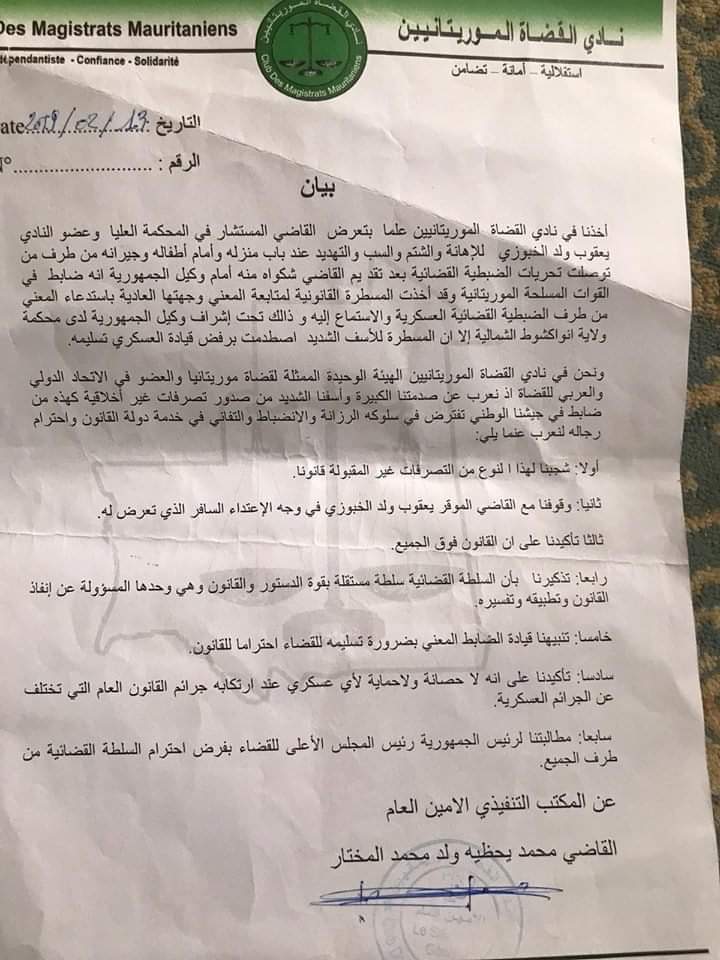 Des Magistrats Mauritaniens
نادي القضاة الموريتانيين
dépendantiste - Confiance - Solidarité
استقلالية – أمانة – تضامن
نادي القضاة الموريتانيين
Club Des Magistrats Mauritaniens
ate 2019/02/13 التاريخ
N° .......................... الرقم :
بيان
أخذنا في نادي القضاة الموريتانيين علما بتعرض القاضي المستشار في المحكمة العليا وعضو النادي
يعقوب ولد الخبوزي للإهانة والشتم والسب والتهديد عند باب منزله وأمام أطفاله وجيرانه من طرف من
توصلت تحريات الضبطية القضائية بعد تقد يم القاضي شكواه منه أمام وكيل الجمهورية انه ضابط في
القوات المسلحة الموريتانية وقد أخذت المسطرة القانونية لمتابعة المعني وجهتها العادية باستدعاء المعني
من طرف الضبطية القضائية العسكرية والاستماع إليه و ذالك تحت إشراف وكيل الجمهورية لدى محكمة
ولاية انواكشوط الشمالية إلا ان المسطرة للأسف الشديد اصطدمت برفض قيادة العسكري تسليمه.
ونحن في نادي القضاة الموريتانيين الهيئة الوحيدة الممثلة لقضاة موريتانيا والعضو في الاتحاد الدولي
والعربي للقضاة اذ نعرب عن صدمتنا الكبيرة وأسفنا الشديد من صدور تصرفات غير أخلاقية كهذه من
ضابط في جيشنا الوطني تفترض في سلوكه الرزانة والانضباط والتفاني في خدمة دولة القانون واحترام
رجاله لنعرب عنما يلي:
أولا: شجبنا لهذا ا لنوع من التصرفات غير المقبولة قانونا.
ثانيا: وقوفنا مع القاضي الموقر يعقوب ولد الخبوزي في وجه الإعتداء السافر الذي تعرض له.
ثالثا تأكيدنا على ان القانون فوق الجميع.
رابعا: تذكيرنا بأن السلطة القضائية سلطة مستقلة بقوة الدستور والقانون وهي وحدها المسؤولة عن إنفاذ
القانون وتطبيقه وتفسيره.
خامسا: تنبيهنا قيادة الضابط المعني بضرورة تسليمه للقضاء احتراما للقانون.
سادسا: تأكيدنا على انه لا حصانة ولاحماية لأي عسكري عند ارتكابه جرائم القانون العام التي تختلف
عن الجرائم العسكرية.
سابعا: مطالبتنا لرئيس الجمهورية رئيس المجلس الأعلى للقضاء بفرض احترام السلطة القضائية من
طرف الجميع.
عن المكتب التنفيذي الامين العام
القاضي محمد يحظيه ولد محمد المختار